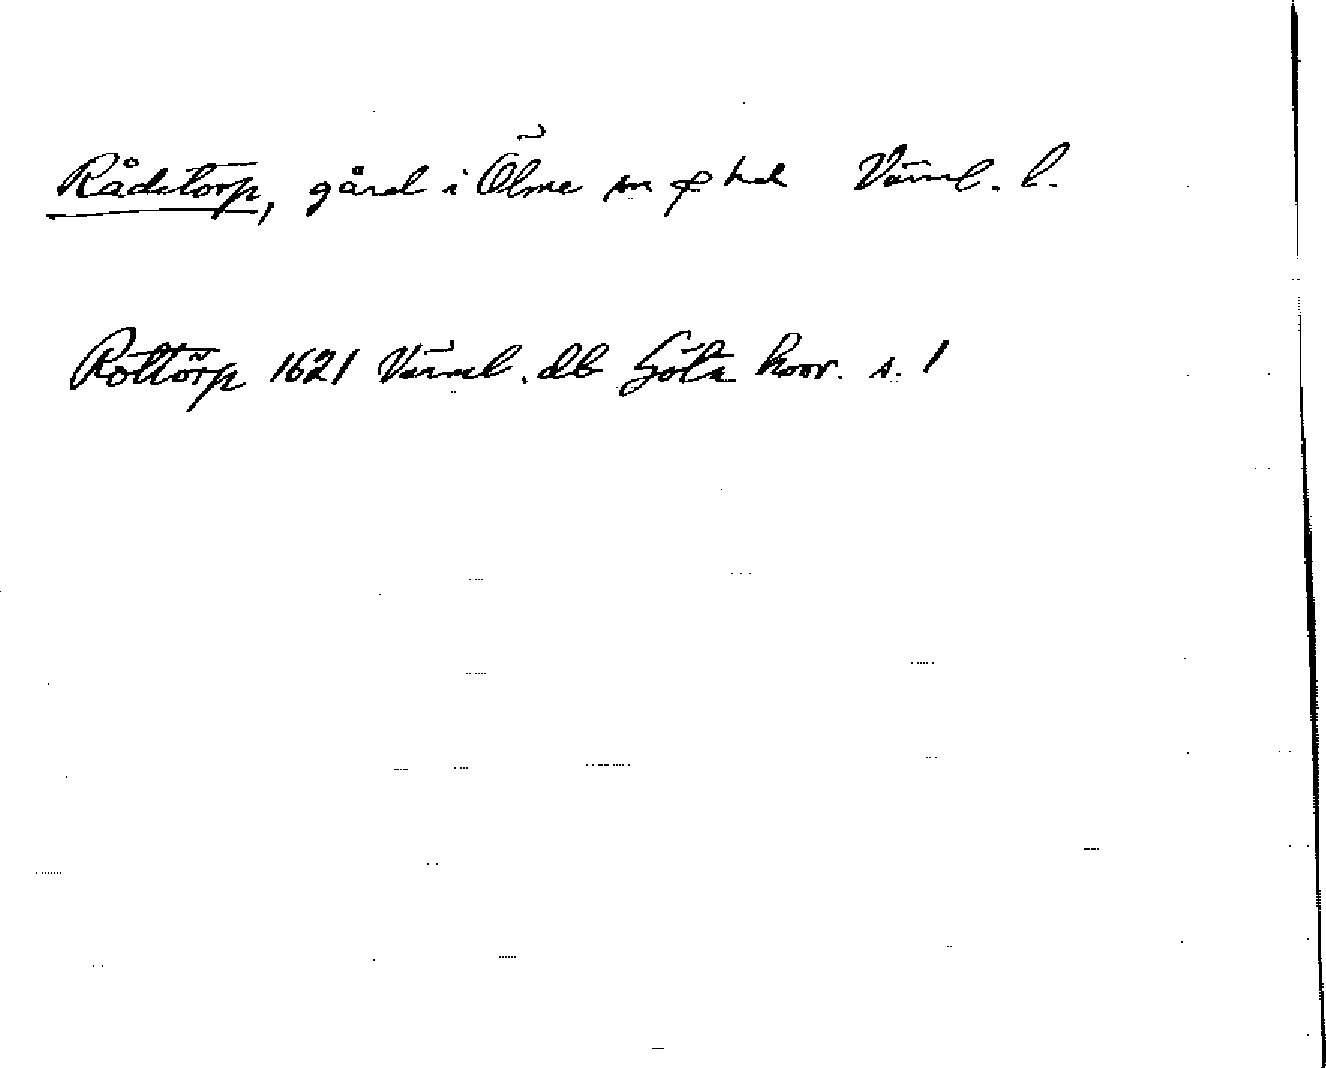 Rådstorp, gård i Ölme sn o hd Värml. l.
Rottörp 1621 Värml. db Göta hovr. s. 1